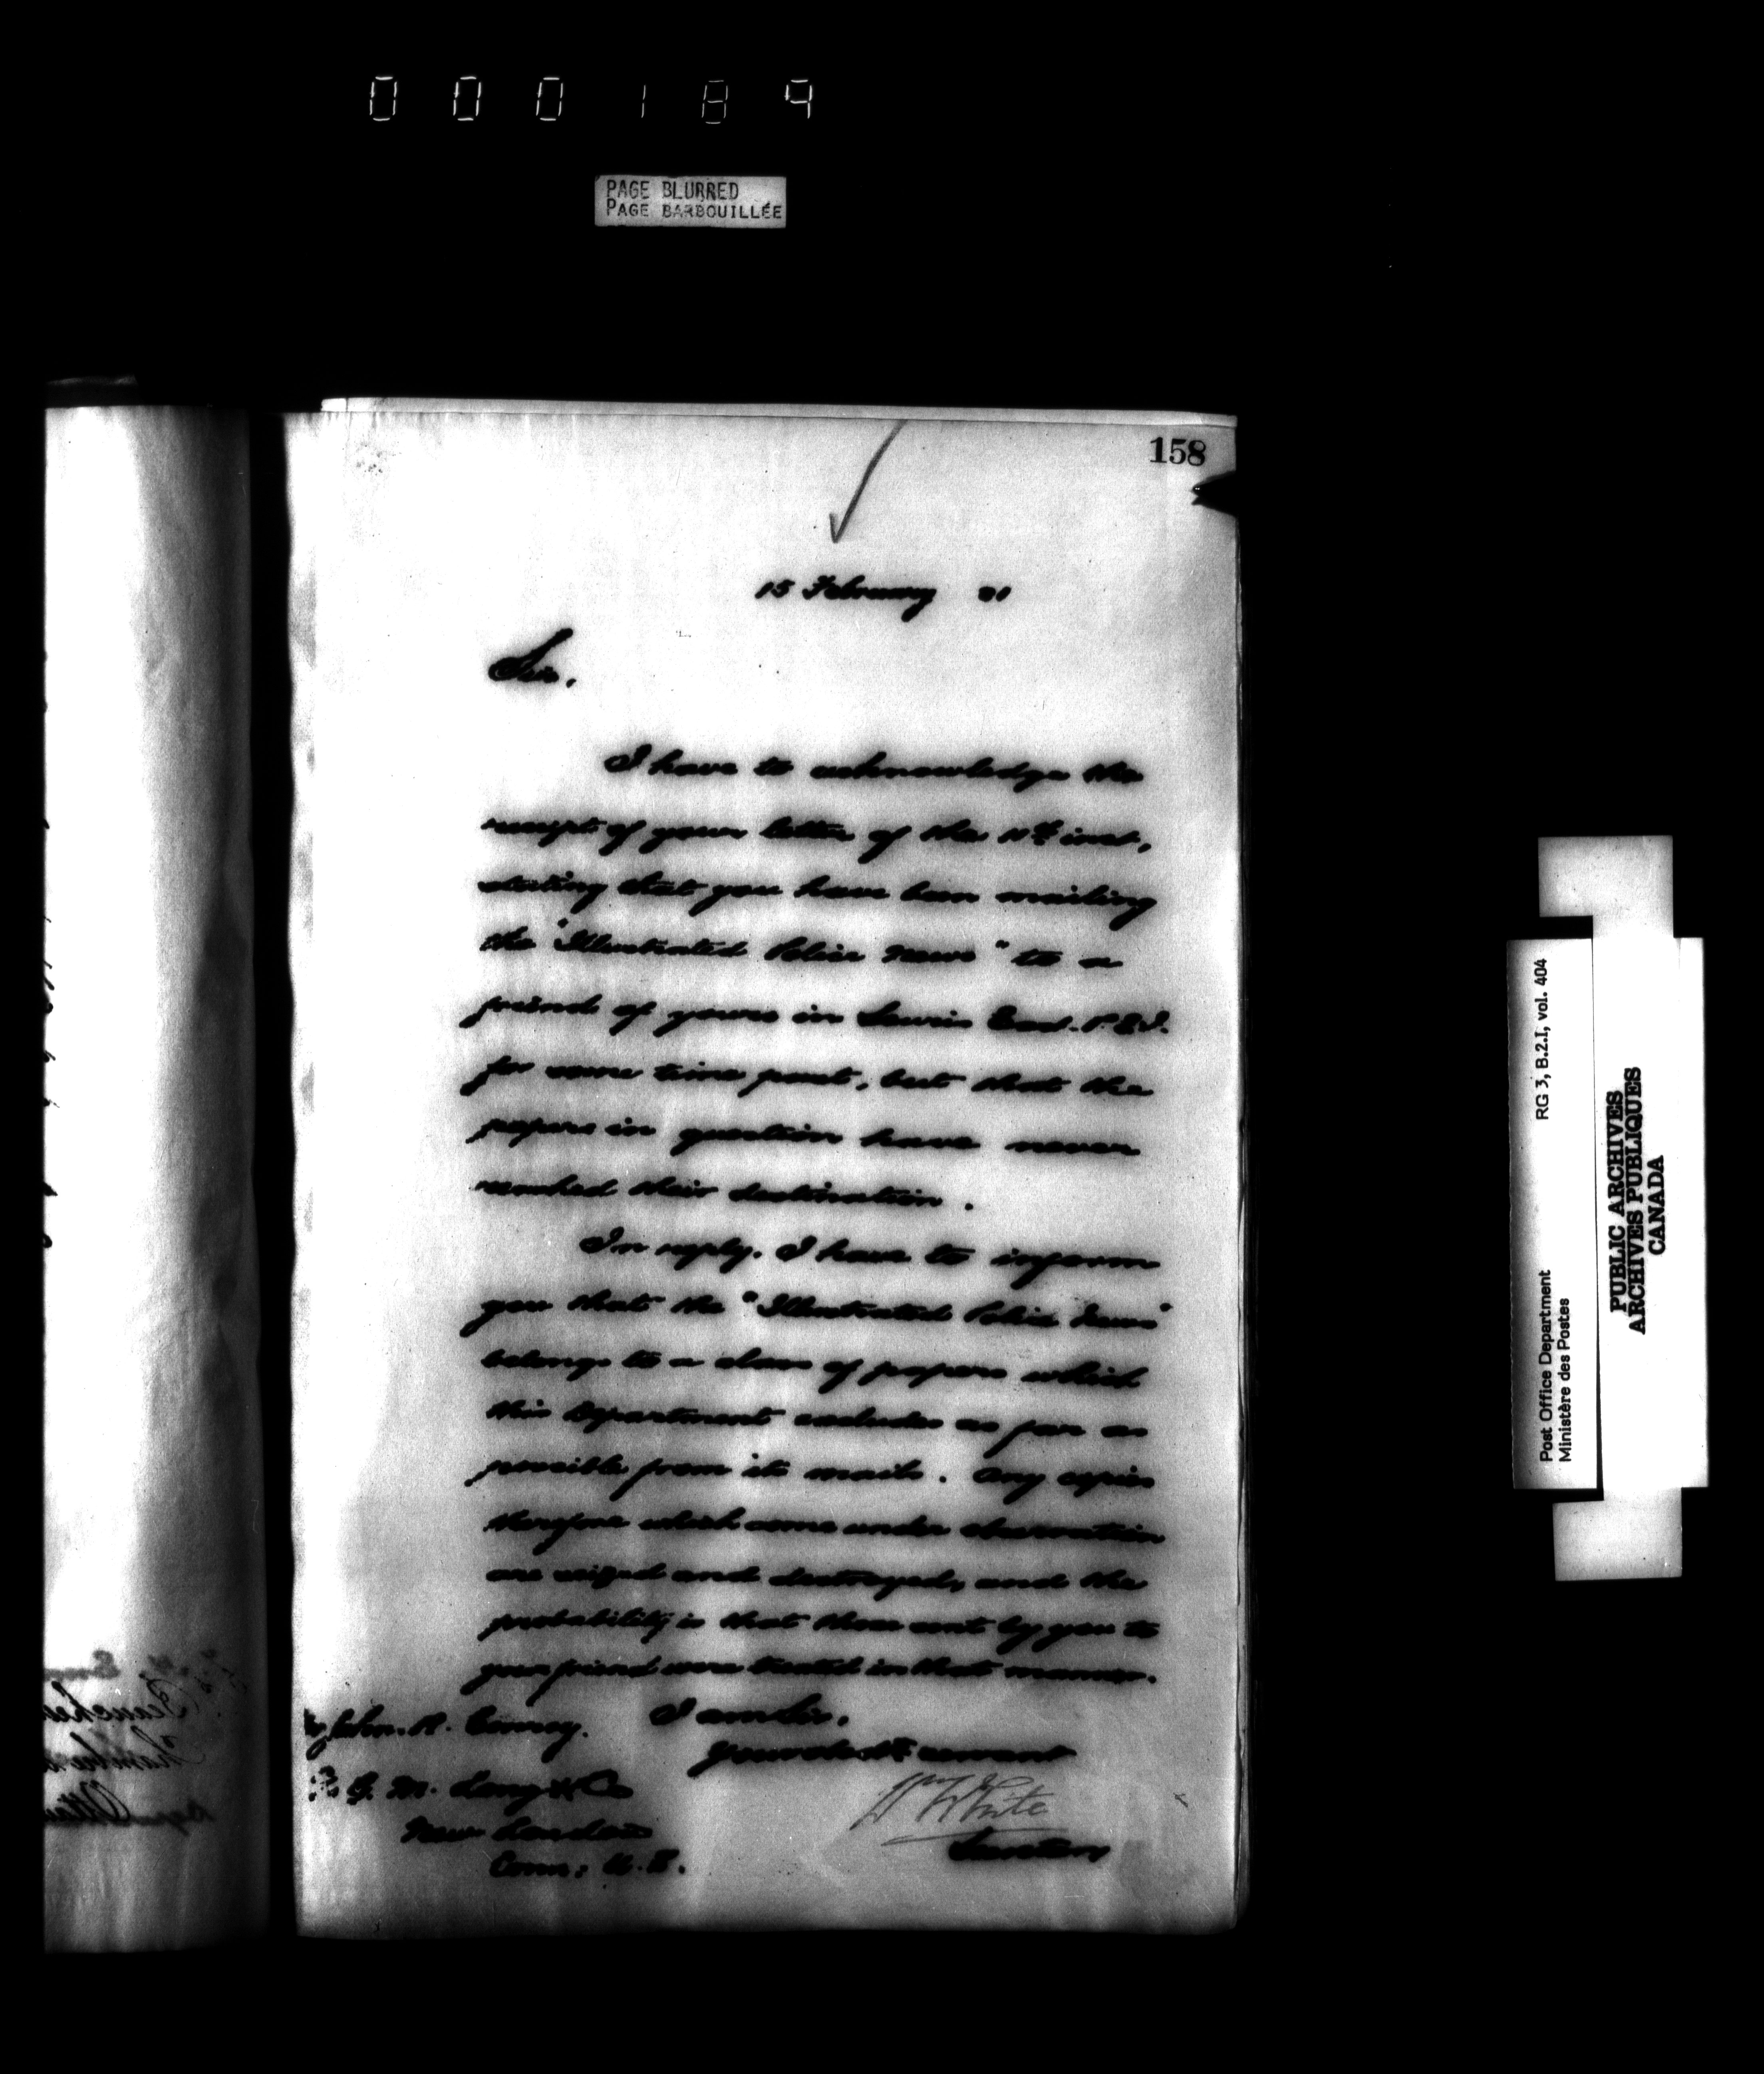 000189
PAGE BLURRED
PAGE BARBOUILLÉE
158
15 February 91
Sir,
I have to acknowledge the
receipt of your letter of the 11th inst,
stating that you have been mailing
the "Illustrated Police News" to a
friend of yours in Souris East. P.E.I.
for some time past, but that the
papers in question have never
reached their destination.
In reply. I have to inform
you that the "Illustrated Police News"
belongs to a class of papers which
this Department excludes as far as
possible from its mails. Any copies
therefore which come under observation
are seized and destroyed, and the
probability is that those sent by you to
your friend were treated in that manner.
I am Sir,
Your obedt servant
Wm White
Secretary
John. R. Conroy.
New London
Conn: U.S.
RG 3, B.2.I, vol. 404
Post Office Department
Ministère des Postes
PUBLIC ARCHIVES
ARCHIVES PUBLIQUES
CANADA